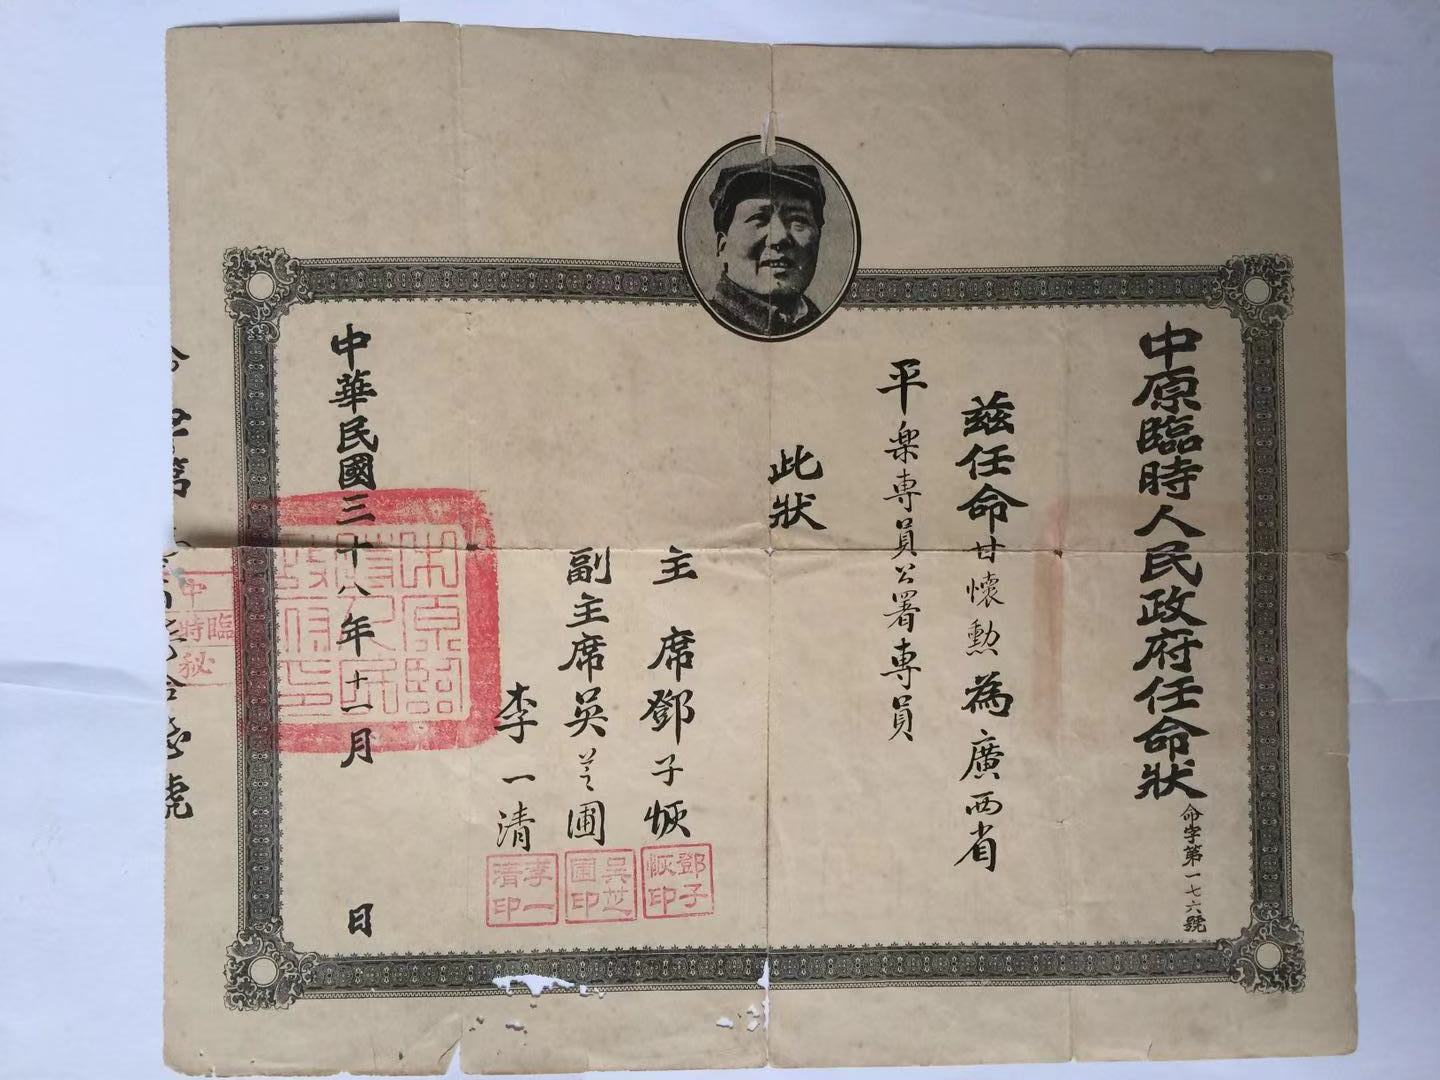 中原臨時人民政府任命狀
命字第一七六號
兹任命甘懷勳為廣西省
平樂專員公署專員
此狀
主席鄧子恢
副主席吳芝圃
李一清
鄧子恢印
吳芝圃印
李一清印
中華民國三十八年十一月 日
中原臨時人民政府印
中臨時秘